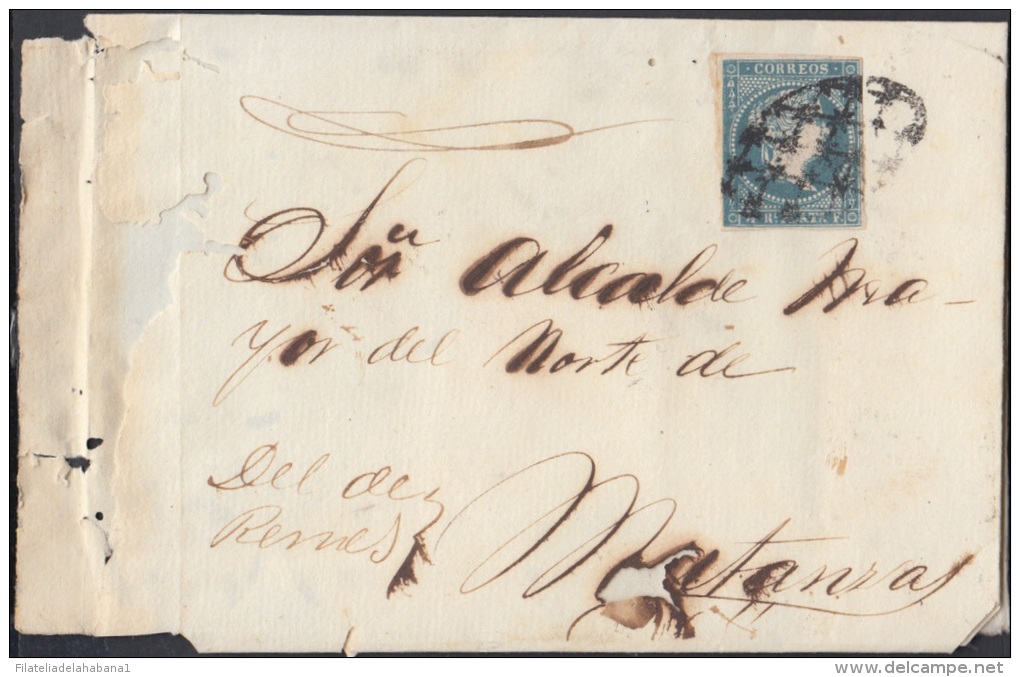 CORREOS
Rl PLATA F.
Sor Alcalde Ma-
yor del Norte de
Del de
Remes
Matanzas
Filateliadelahabana1
www.delcampe.net